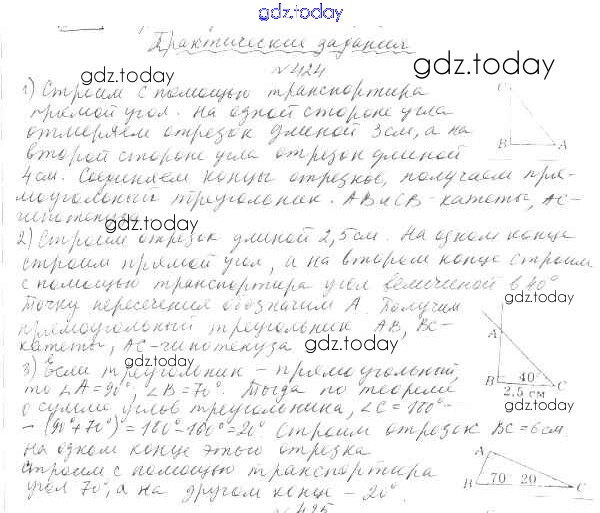 gdz.today
Практические задания
gdz.today
gdz.today
№424
1) Строим с помощью транспортира
прямой угол. На одной стороне угла
отмеряем отрезок длиной 3см, а на
второй стороне угла отрезок длиной
4см. Соединяем концы отрезков, получаем пря-
моугольный треугольник. AB и CB - катеты, AC -
гипотенуза
gdz.today
C
B A
gdz.today
2) Строим отрезок длиной 2,5см. На одном конце
строим прямой угол, а на втором конце строим
с помощью транспортира угол величиной в 40°
Точку пересечения обозначим A. Получим
прямоугольный треугольник AB, BC -
катеты, AC - гипотенуза
gdz.today
gdz.today
gdz.today
A
B 40° C
2,5 см
gdz.today
3) Если треугольник - прямоугольный,
то ∠A = 90°, ∠B = 70°. Тогда по теореме
о сумме углов треугольника, ∠C = 180° -
- (90°+70°) = 180°-160° = 20° Строим отрезок BC = 6см.
На одном конце этого отрезка
строим с помощью транспортира
угол 70°, а на другом конце - 20°.
gdz.today
A
B 70° 20 C
gdz.today
gdz.today
№425